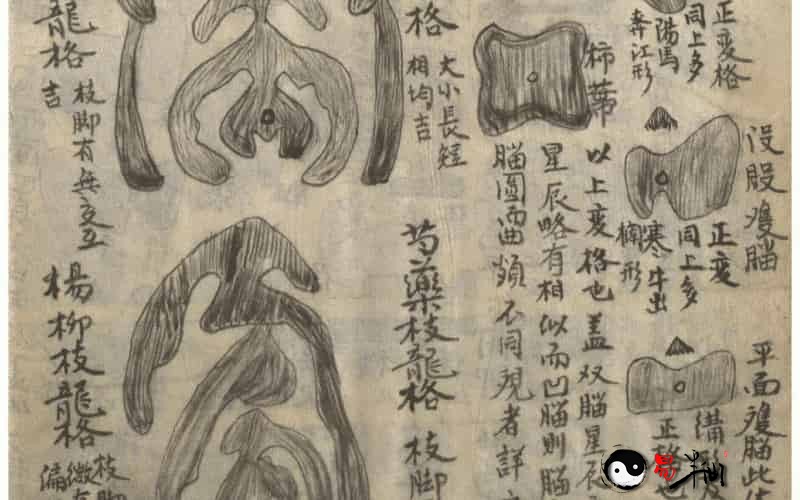 正変格
同上多
陽馬
奔江形
没股雙腦
正変
同上多
寒牛出
欄形
平面雙腦此
溝
正格也
柿蒂
以上変格也盖双腦星辰
星辰略有相似而凹腦則腦
腦圓而曲頗不同現者詳
格
大小長短
相均吉
芍藥枝龍格
枝脚
龍格
枝脚有無交互
吉
楊柳枝龍格
枝脚
微有
偏